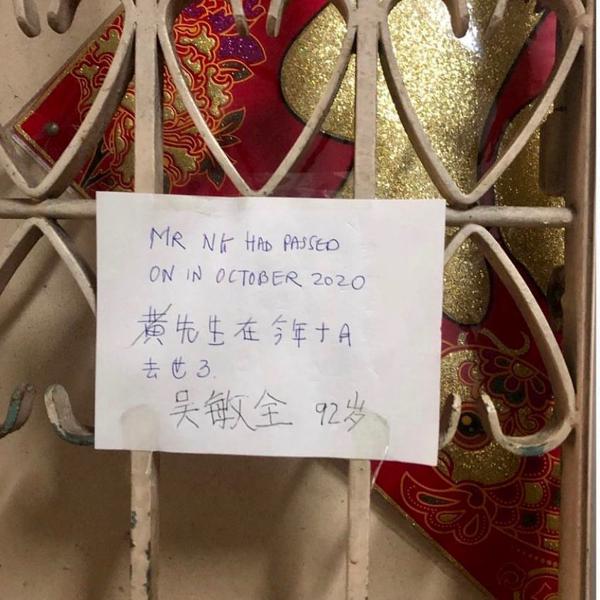 MR NG HAD PASSED
ON IN OCTOBER 2020
黄先生在今年十月
去世了.
吴敏全 92岁